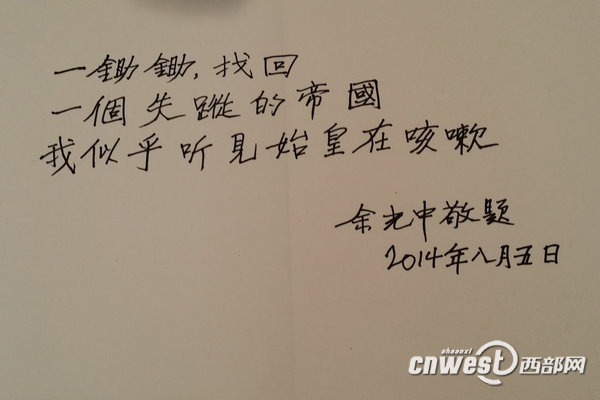 一鋤鋤，找回
一個失蹤的帝國
我似乎听見始皇在咳嗽
余光中敬題
2014年八月五日
shaanxi
cnwest 西部网